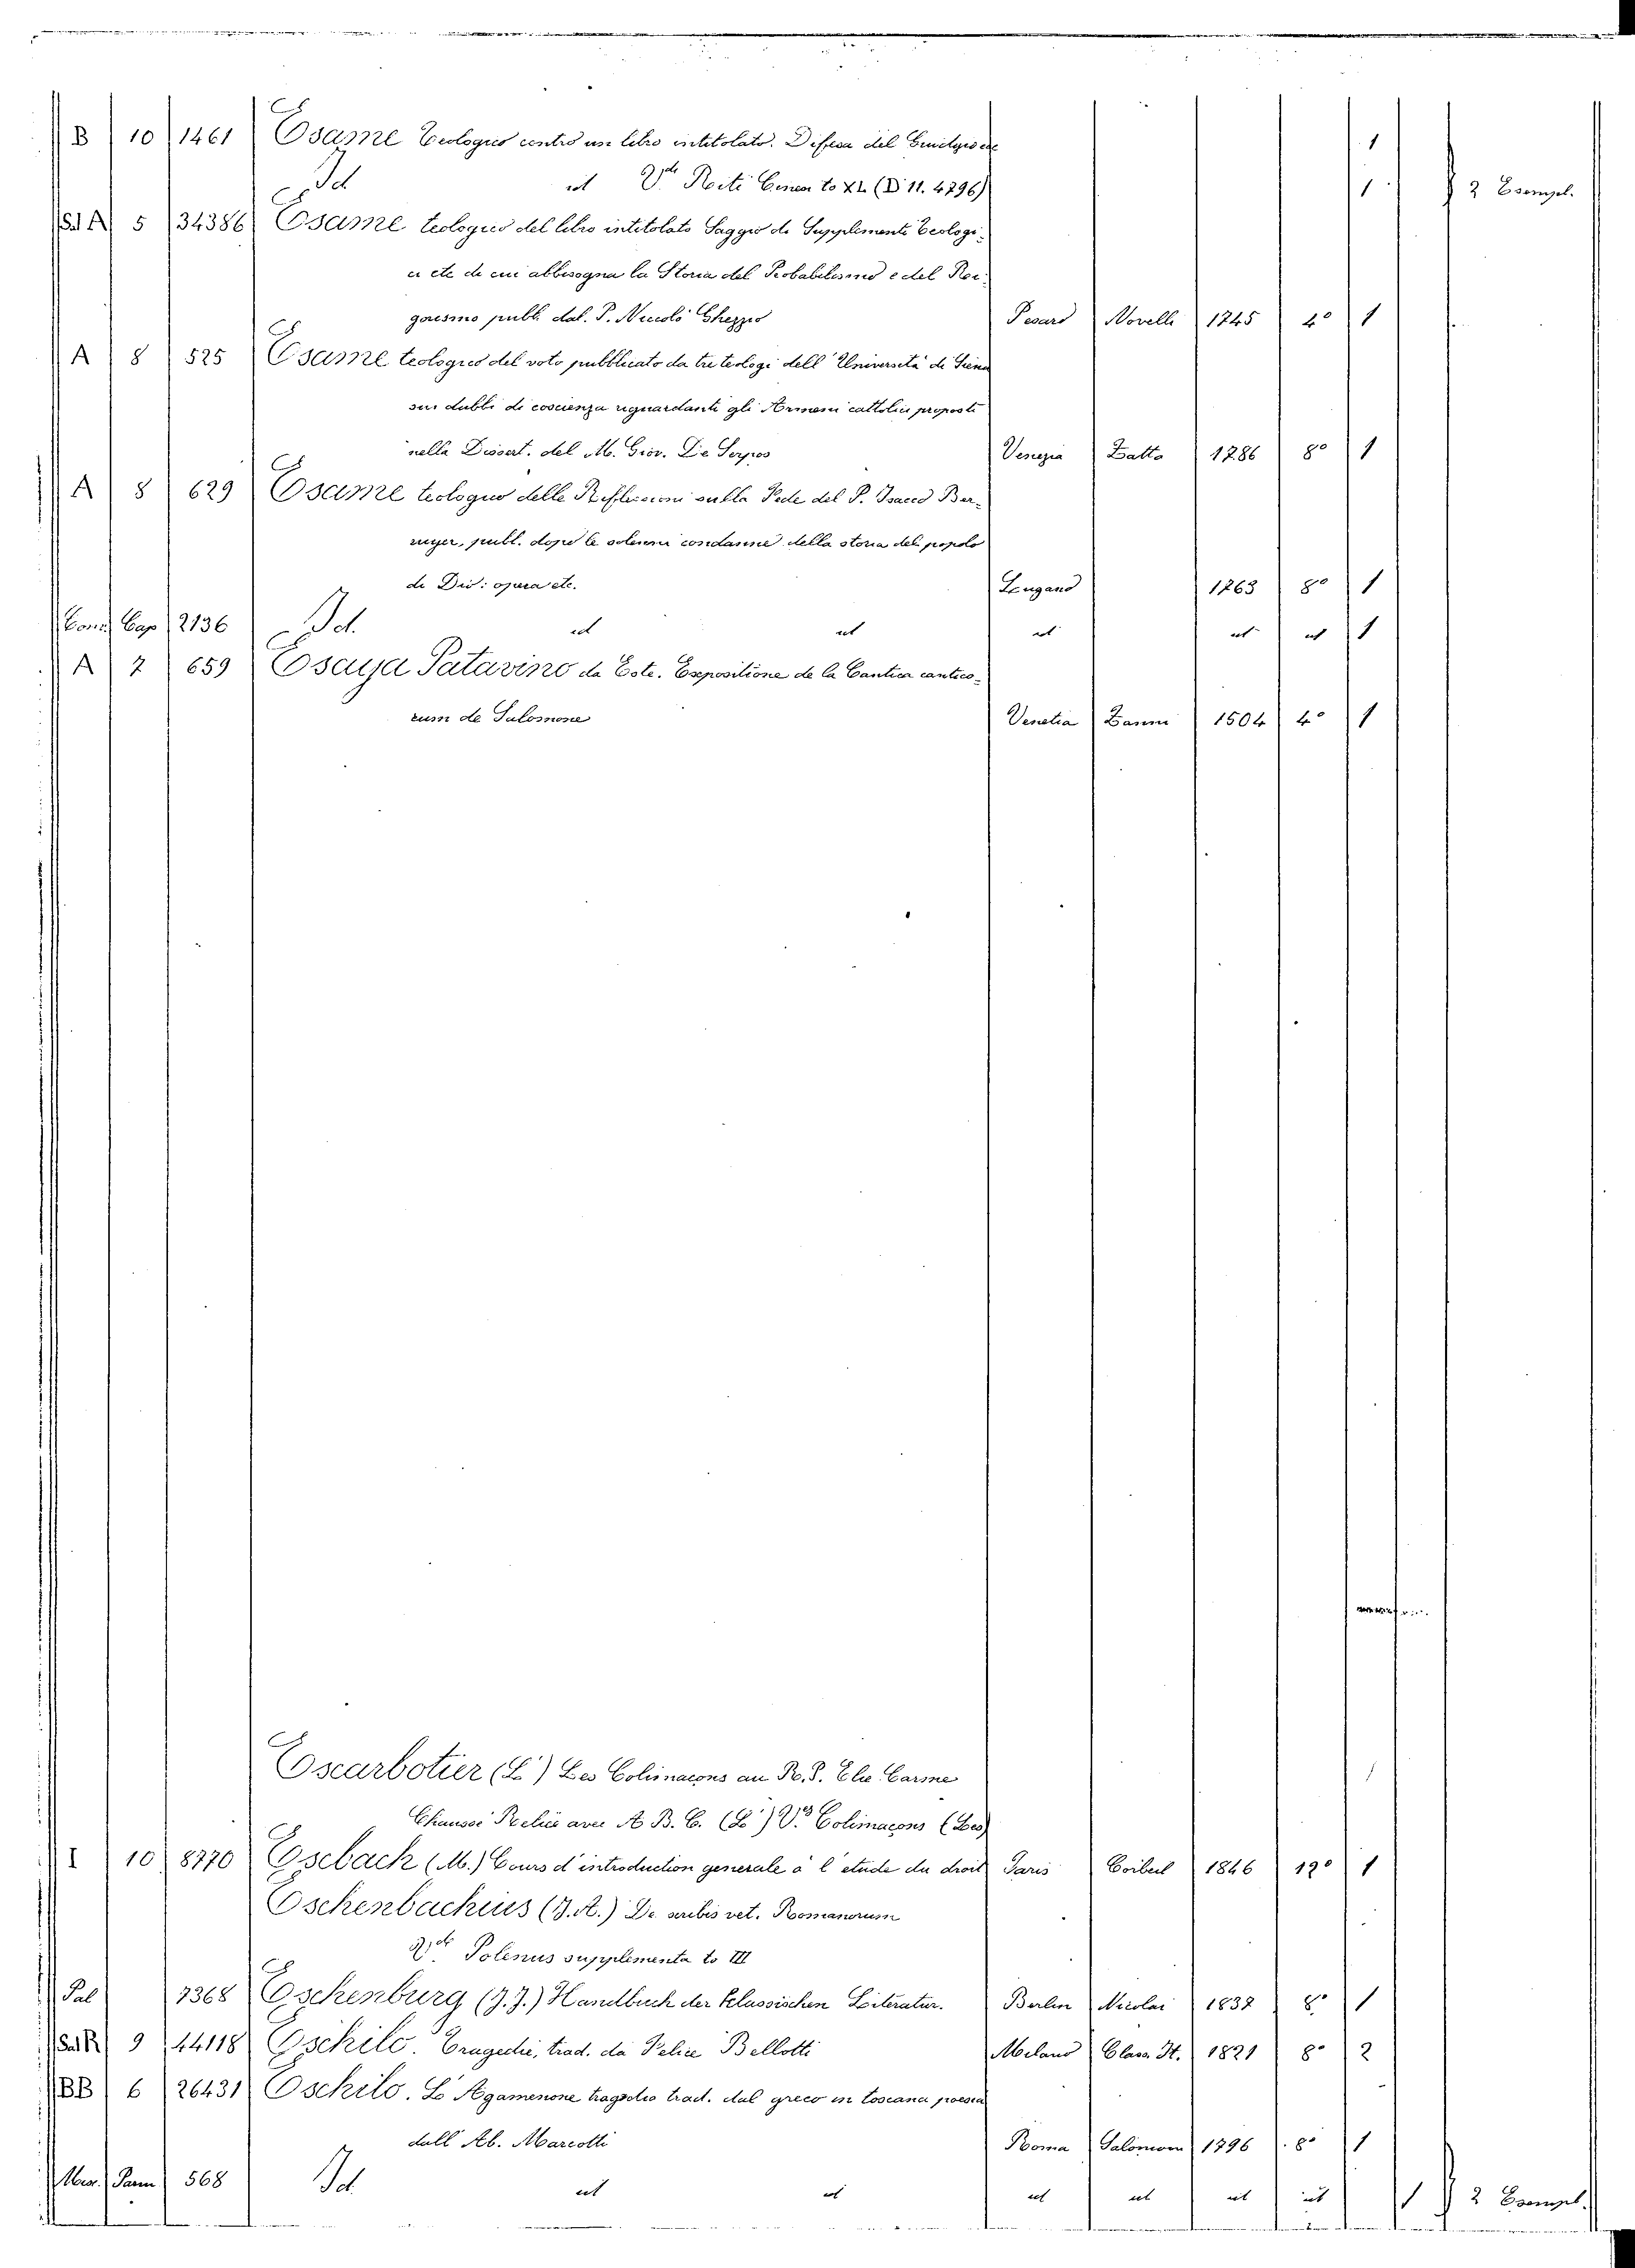 B 10 1461 Esame Teologico contro un libro intitolato. Difesa del
Id ut V.de Rocti to XL (D 11. 4796) 1 2 Esempl.
Sal A 5 34386 Esame teologico del libro intitolato Saggio di Supplimenti Teologi-
ci etc di cui abbisogna la Storia del Probabilismo e del Ri-
gorismo pubb. dal. P. Niccolò Ghezzio Pesaro Novelli 1745 4° 1
A 8 525 Esame teologico del voto pubblicato da tre teologi dell' Università di Siena
sui dubbi di coscienza riguardanti gli Armeni cattolici proposti
nella Dissert. del M. Giov. De Serpos Venezia Zatta 1786 8° 1
A 8 629 Esame teologico delle Riflessioni sulla Fede del P. Isacco Ber-
ruyer, publ. dopo le solenni condanne della storia del popolo
di Dio: opera etc. Lugano 1763 8° 1
Cons Cap 2136 Id. ut ut ut ut ut 1
A 7 659 Esaya Patavino da Este. Expositione de la Cantica cantico-
rum de Salomone Venetia Zanni 1504 4° 1
Escarbotier (L') Les Colimaçons au R. P. Elie Carme
Chaussé Prechée avec A. B. C. (L') V.° Colimaçons (Les)
I 10 8770 Eseback (M.) Cours d'introduction generale à l'etude du droit Paris Corbeil 1846 12° 1
Eschenbachius (J. A.) De scribis vet. Romanorum
V.de Polenus supplementa to III
Pal 7368 Eschenburg (J. J.) Handbuch der klassischen Literatur. Berlin Nicolai 1837 8° 1
Sal R 9 44118 Eschilo. Tragedie, trad. da Felice Bellotti Milano Class. It. 1821 8° 2
BB 6 26431 Eschilo. L'Agamenone tragedia trad. dal greco in toscana poesia
dall Ab. Marcotti Roma Salomoni 1796 8° 1
Mus. Parm 568 Id. ut ut ut ut ut ut 1 2 Esempl.